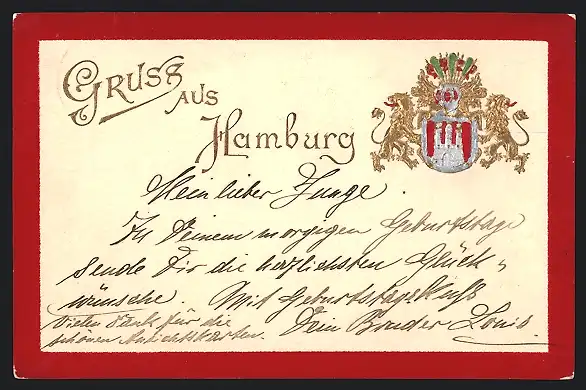 Gruss
aus
Hamburg
Mein lieber Junge.
Zu Deinem morgigen Geburtstage
sende Dir die herzlichsten Glück-
wünsche. Mit Geburtstagskuß
Dein Bruder Louis
Vielen Dank für die
schönen Ansichtskarten.